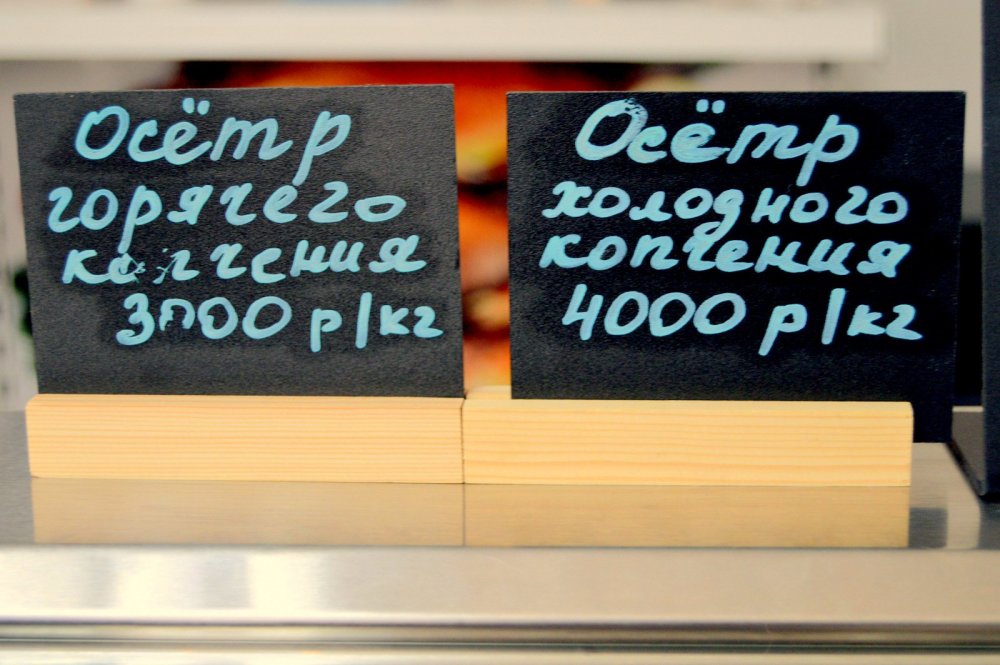 Осётр
горячего
копчения
3000 р/кг
Осётр
холодного
копчения
4000 р/кг